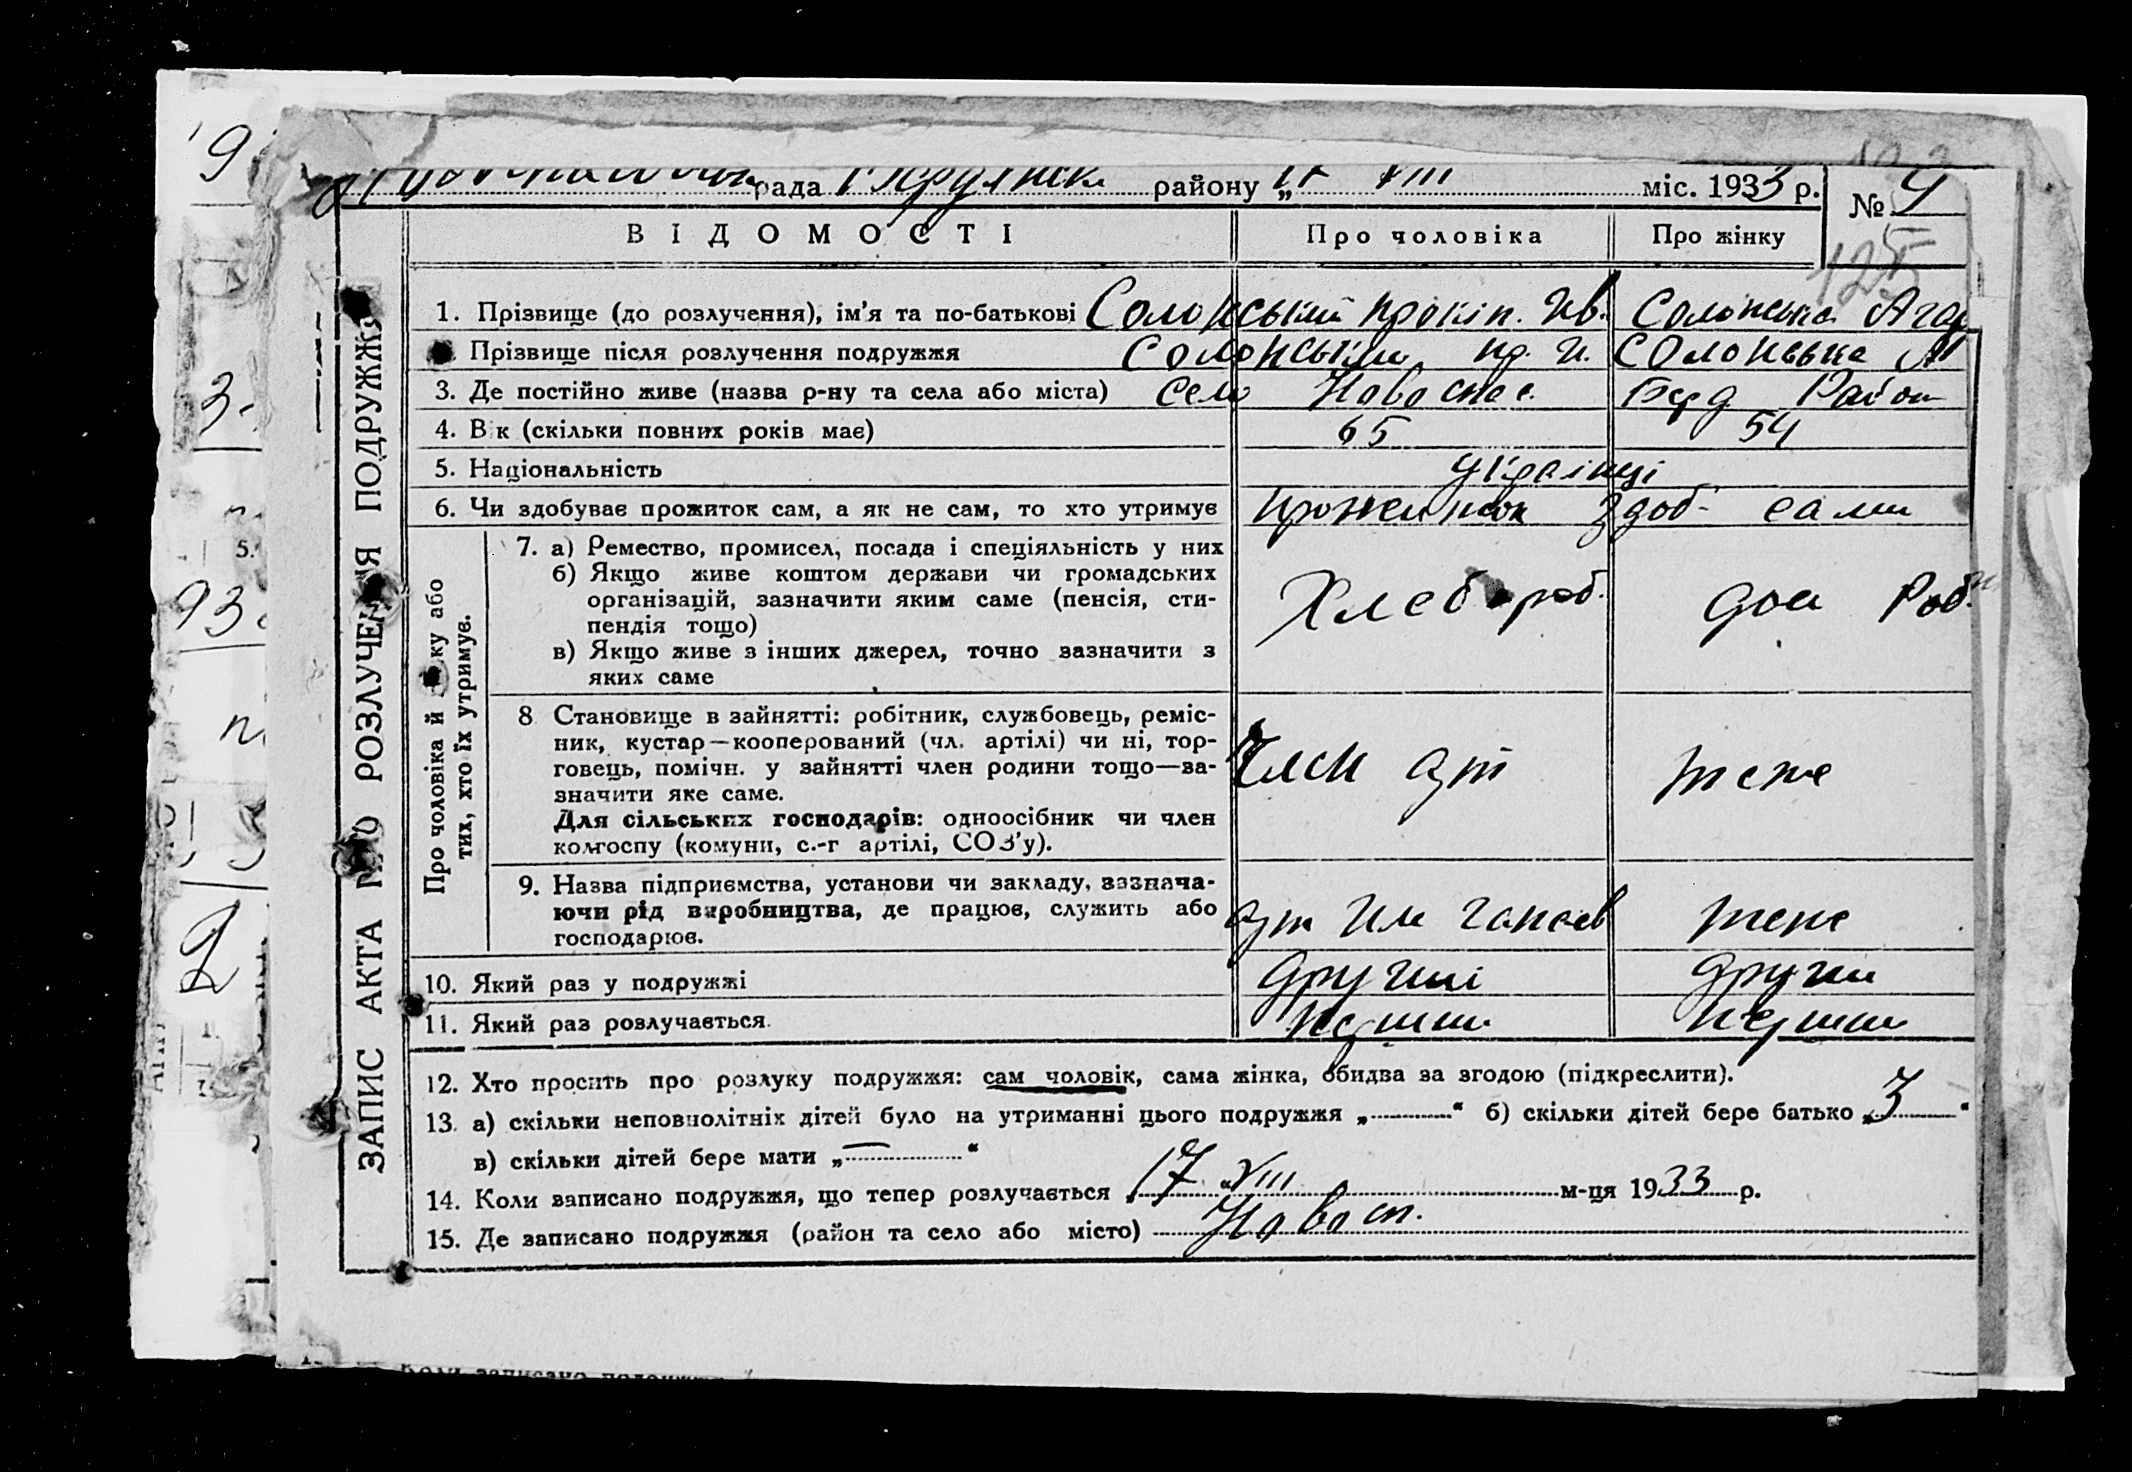 рада район у „17 VIII міс. 1933 р. № 4
125
ВІДОМОСТІ Про чоловіка Про жінку
ЗАПИС АКТА ПРО РОЗЛУЧЕННЯ ПОДРУЖЖЯ
1. Прізвище (до розлучення), ім'я та по-батькові Солонський Прокіп. Ів. Солонська Агар
Прізвище після розлучення подружжя Солонський пр. И. Солонська
3. Де постійно живе (назва р-ну та села або міста) село Новоспас. Берд Район
4. Вік (скільки повних років має) 65 54
5. Національність Українці
6. Чи здобуває прожиток сам, а як не сам, то хто утримує прожиток здоб. сами
Про чоловіка й жінку або
тих, хто їх утримує.
7. а) Ремество, промисел, посада і спеціяльність у них
б) Якщо живе коштом держави чи громадських
організацій, зазначити яким саме (пенсія, сти-
пендія тощо)
в) Якщо живе з інших джерел, точно зазначити з
яких саме
Хлебороб. дом Роб.
8 Становище в зайнятті: робітник, службовець, реміс-
ник, кустар—кооперований (чл. артілі) чи ні, тор-
говець, помічн. у зайнятті член родини тощо—за-
значити яке саме.
Для сільських господарів: одноосібник чи член
колгоспу (комуни, с.-г артілі, СОЗ'у).
Член арт теже
9. Назва підприємства, установи чи закладу, зазнача-
ючи рід виробництва, де працює, служить або
господарює.
арт Им Чапаев теже
10. Який раз у подружжі другий други
11. Який раз розлучається. перши перши
12. Хто просить про розлуку подружжя: сам чоловік, сама жінка, обидва за згодою (підкреслити).
13. а) скільки неповнолітніх дітей було на утриманні цього подружжя „ “ б) скільки дітей бере батько „3 “
в) скільки дітей бере мати „— “
14. Коли записано подружжя, що тепер розлучається „17 “ VIII м-ця 1933 р.
15. Де записано подружжя (район та село або місто) Новосп.